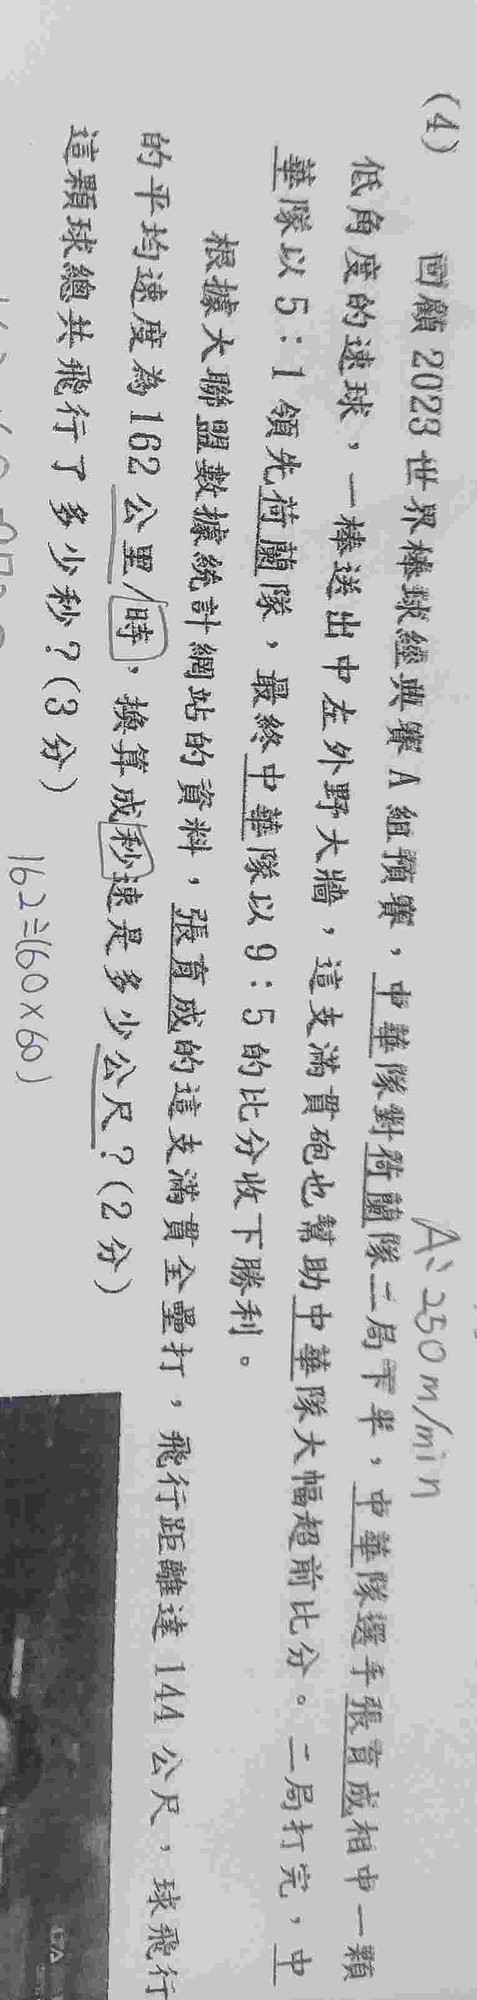 A: 250 m/min
(4) 回顧 2023 世界棒球經典賽 A 組預賽，中華隊對荷蘭隊二局下半，中華隊選手張育成相中一顆
低角度的速球，一棒送出中左外野大牆，這支滿貫砲也幫助中華隊大幅超前比分。二局打完，中
華隊以 5：1 領先荷蘭隊，最終中華隊以 9：5 的比分收下勝利。
根據大聯盟數據統計網站的資料，張育成的這支滿貫全壘打，飛行距離達 144 公尺，球飛行
的平均速度為 162 公里/時，換算成秒速是多少公尺？(2 分)
這顆球總共飛行了多少秒？(3 分)
162÷(60×60)